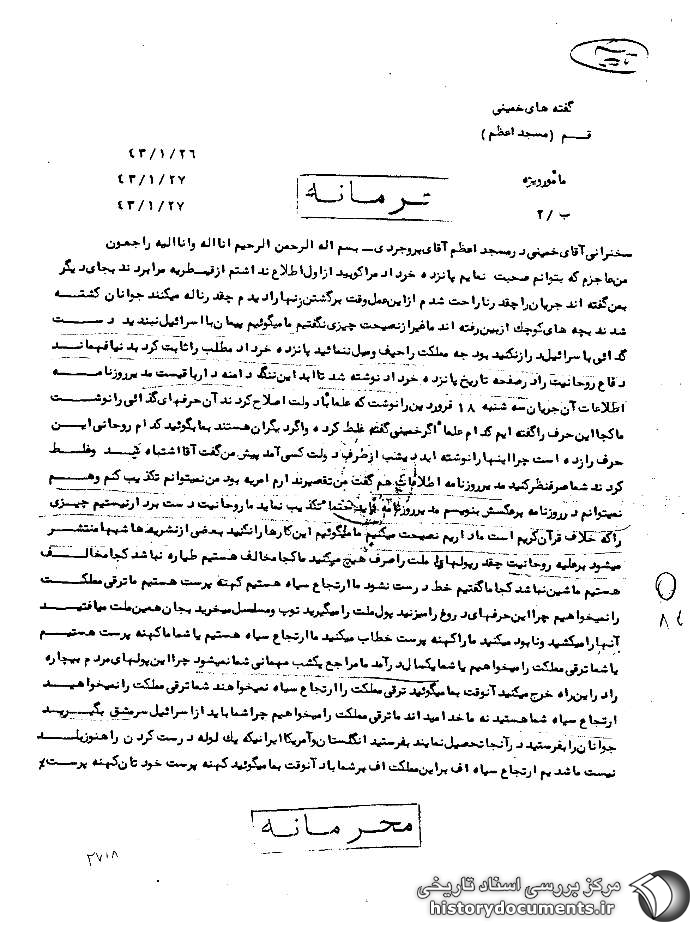 گفته های خمینی
قم (مسجد اعظم)
۴۳/۱/۲۶
مأمور ویژه
۴۳/۱/۲۷
ب /۲
۴۳/۱/۲۷
سخنرانی آقای خمینی در مسجد اعظم آقای بروجردی ـ بسم اله الرحمن الرحیم انا اله وانا الیه راجعون
من عاجزم که بتوانم صحبت نمایم پانزده خرداد مرا کوبید از اول اطلاع نداشتم از قیطریه مرا بردند بجای دیگر
بمن گفته اند جریان را چقدر ناراحت شدم از این عمل وقت برگشتن زنها را دیدم چقدر ناله میکنند جوانان کشته
شدند بچه های کوچک از بین رفته اند ما غیر از نصیحت چیزی نگفتیم ما میگوئیم پیمان با اسرائیل نبندید دست
گدائی با سرائیل دراز نکنید بودجه مملکت را حیف ومیل ننمائید پانزده خرداد مطلب را ثابت کرد بدنیا فهماند
دفاع روحانیت را در صفحه تاریخ پانزده خرداد نوشته شد تا ابد این ننگ دامنه دارد باقیست مدیر روزنامه
اطلاعات آن جریان سه شنبه ۱۸ فروردین را نوشت که علما با دولت اصلاح کردند آن حرفهای گدائی را نوشت
ما کجا این حرف را گفته ایم کدام علما اگر خمینی گفته غلط کرده واگر دیگران هستند بما بگوئید کدام روحانی این
حرف را زده است چرا اینها را نوشته اید دیشب از طرف دولت کسی آمد پیش من گفت آقا اشتباه کردند وغلط
کردند شما صرفنظر کنید مدیر روزنامه اطلاعات هم گفت من تقصیر ندارم امریه بود من نمیتوانم تکذیب کنم وهم
نمیتوانم در روزنامه برعکسش بنویسم مدیر روزنامه باید حتما تکذیب نماید ما روحانیت دست بردار نیستیم چیزی
را که خلاف قرآن کریم است ما داریم نصیحت میکنیم ما میگوئیم این کارها را نکنید بعضی از نشریه ها شبها منتشر
میشود بر علیه روحانیت چقدر پولهای ملت را صرف هیچ میکنید ما کجا مخالف هستیم طیاره نباشد کجا مخالف
هستیم ماشین نباشد کجا ما گفتیم خط درست نشود ما ارتجاع سیاه هستیم کهنه پرست هستیم ما ترقی مملکت
را نمیخواهیم چرا این حرفهای دروغ را میزنید پول ملت را میگیرید توپ ومسلسل میخرید بجان همین ملت میافتید
آنها را میکشید ونابود میکنید ما را کهنه پرست خطاب میکنید ما ارتجاع سیاه هستیم یا شما ما کهنه پرست هستیم
یا شما ترقی مملکت را میخواهیم یا شما یکسال درآمد ما راجع یکشب مهمانی شما نمیشود چرا این پولهای مردم بیچاره
را در این راه خرج میکنید آنوقت بما میگوئید ترقی مملکت را ارتجاع سیاه نمیخواهند شما ترقی مملکت را نمیخواهید
ارتجاع سیاه شما هستید نه ما خدا میداند ما ترقی مملکت را میخواهیم چرا شما باید از اسرائیل سرمشق بگیرید
جوانان را بفرستید در آنجا تحصیل نمایند بفرستید انگلستان وآمریکا ایرانیکه یک لوله درست کردن را هنوز بلد
نیست ما شدیم ارتجاع سیاه اف بر این مملکت اف بر شما باد آنوقت بما میگوئید کهنه پرست خودتان کهنه پرست
محرمانه
۲۷۱۸
مرکز بررسی اسناد تاریخی
historydocuments.ir